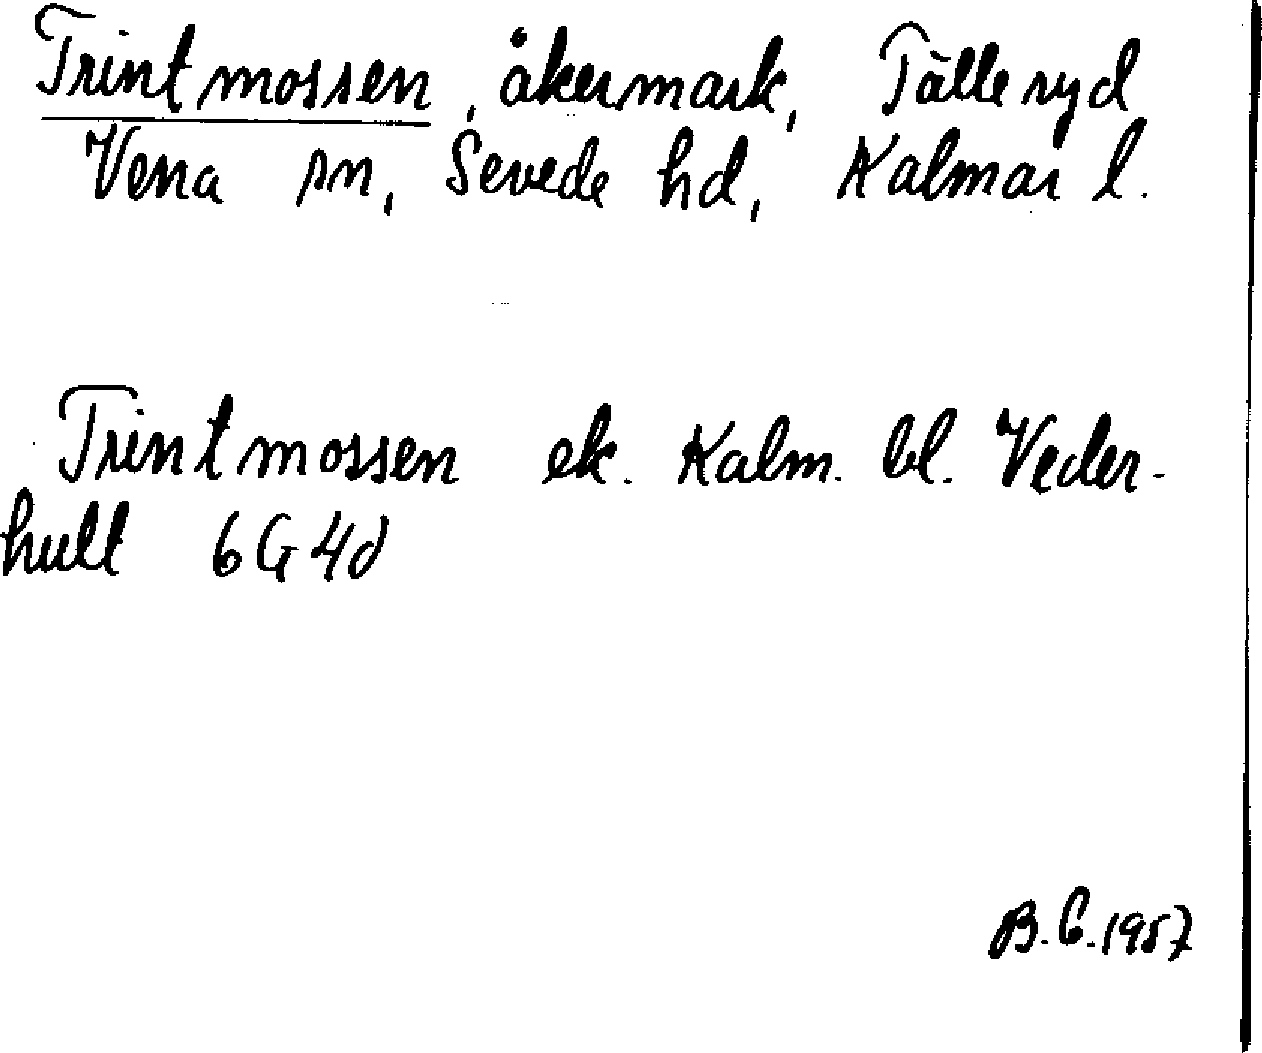 Trintmossen, åkermark, Tälleryd
Vena sn, Sevede hd, Kalmar l.
Trintmossen ek. Kalm. bl. Veder-
hult 6G4d
B.G.1957